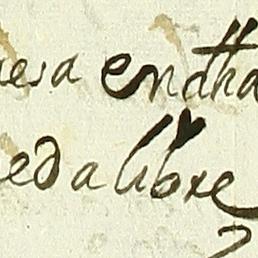 esa endha
eda libre